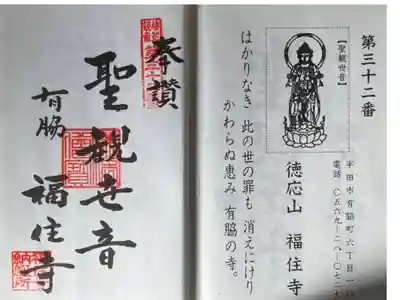 第三十二番
【聖観世音】
半田市有脇町六丁目一八
電話 〇五六九−二八−〇七二
徳応山 福住寺
はかりなき 此の世の罪も 消えにけり
かわらぬ恵み 有脇の寺。
奉讃
聖観世音
有脇 福住寺